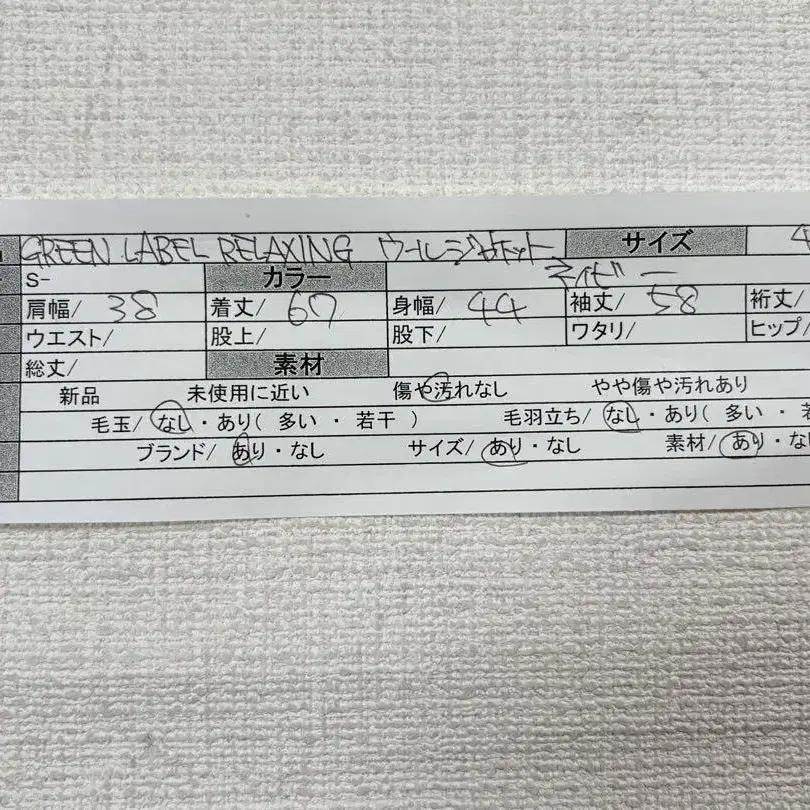 GREEN LABEL RELAXING ウールジャケット サイズ 4
S- カラー ネイビー
肩幅/ 38 着丈/ 67 身幅/ 44 袖丈/ 58 裄丈/
ウエスト/ 股上/ 股下/ ワタリ/ ヒップ/
総丈/ 素材
新品 未使用に近い 傷や汚れなし やや傷や汚れあり
毛玉/ なし・あり( 多い ・ 若干 ) 毛羽立ち/ なし・あり( 多い ・
ブランド/ あり・なし サイズ/ あり・なし 素材/ あり・な